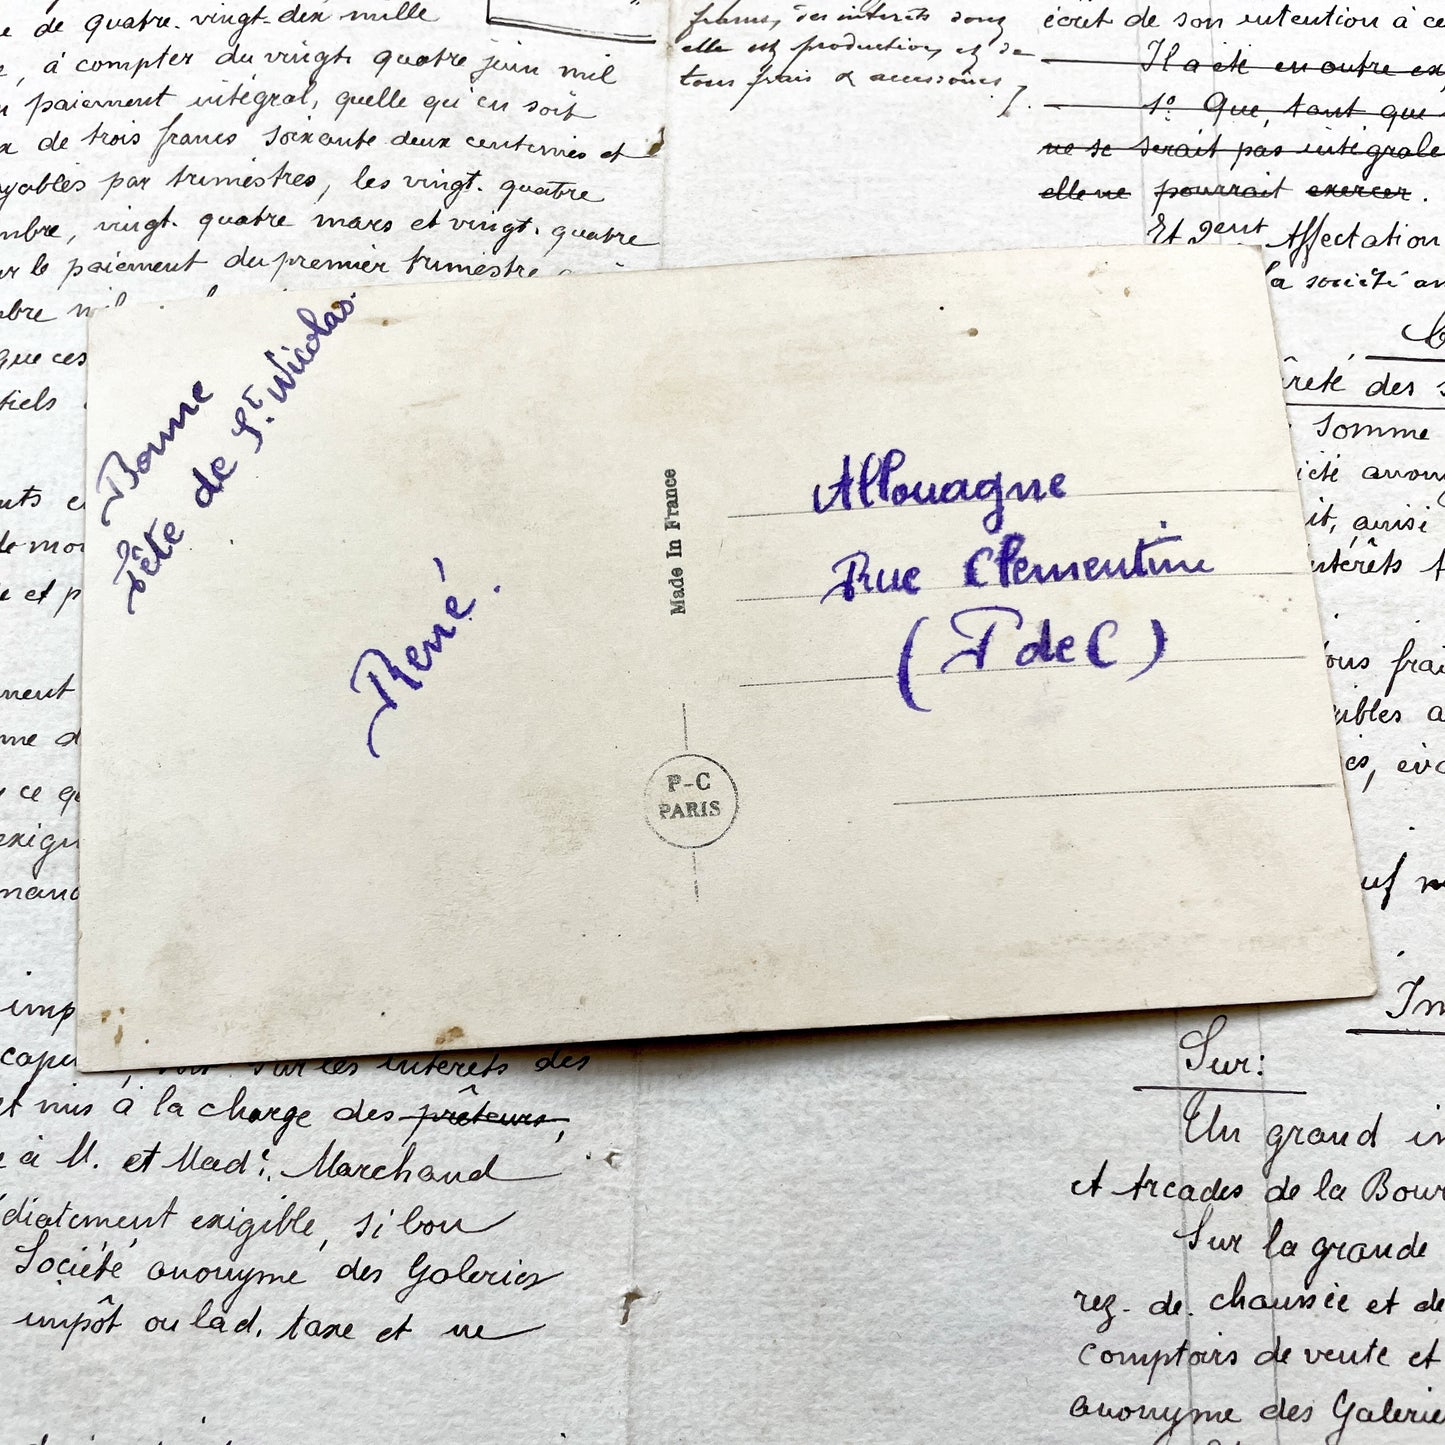 de quatre. vingt. dix mille
, à compter du vingt. quatre juin mil
paiement intégral, quelle qu'en soit
de trois francs soixante deux centimes et
par trimestres, les vingt. quatre
mbre, vingt. quatre mars et vingt. quatre
le paiement du premier trimestre
que ces
tiels
francs, des intérêts dont
elle est production, et de
tous frais & accessoires
de son intention à ce
Il a été en outre
1º Que, tant que
ne se serait pas intégrale
elle ne pourrait exercer.
Et gent Affectation
la société an
des
Somme
anony
it, ainsi
intérêts
tous frai
Bonne
Fête de St. Nicolas.
René.
Made In France
P-C
PARIS
Allouagne
Rue Clementine
(P de C)
et p
ment
ce
imp
sur les intérêts des
et mis à la charge des prêteurs,
à M. et Made. Marchand
diatement exigible, si bon
Société anonyme des Galeries
impôt ou lad. taxe et ne
Sur:
Un grand
et Arcades de la Bour
Sur la grande
rez. de. chaussée et de
comptoirs de vente et
anonyme des Galerie